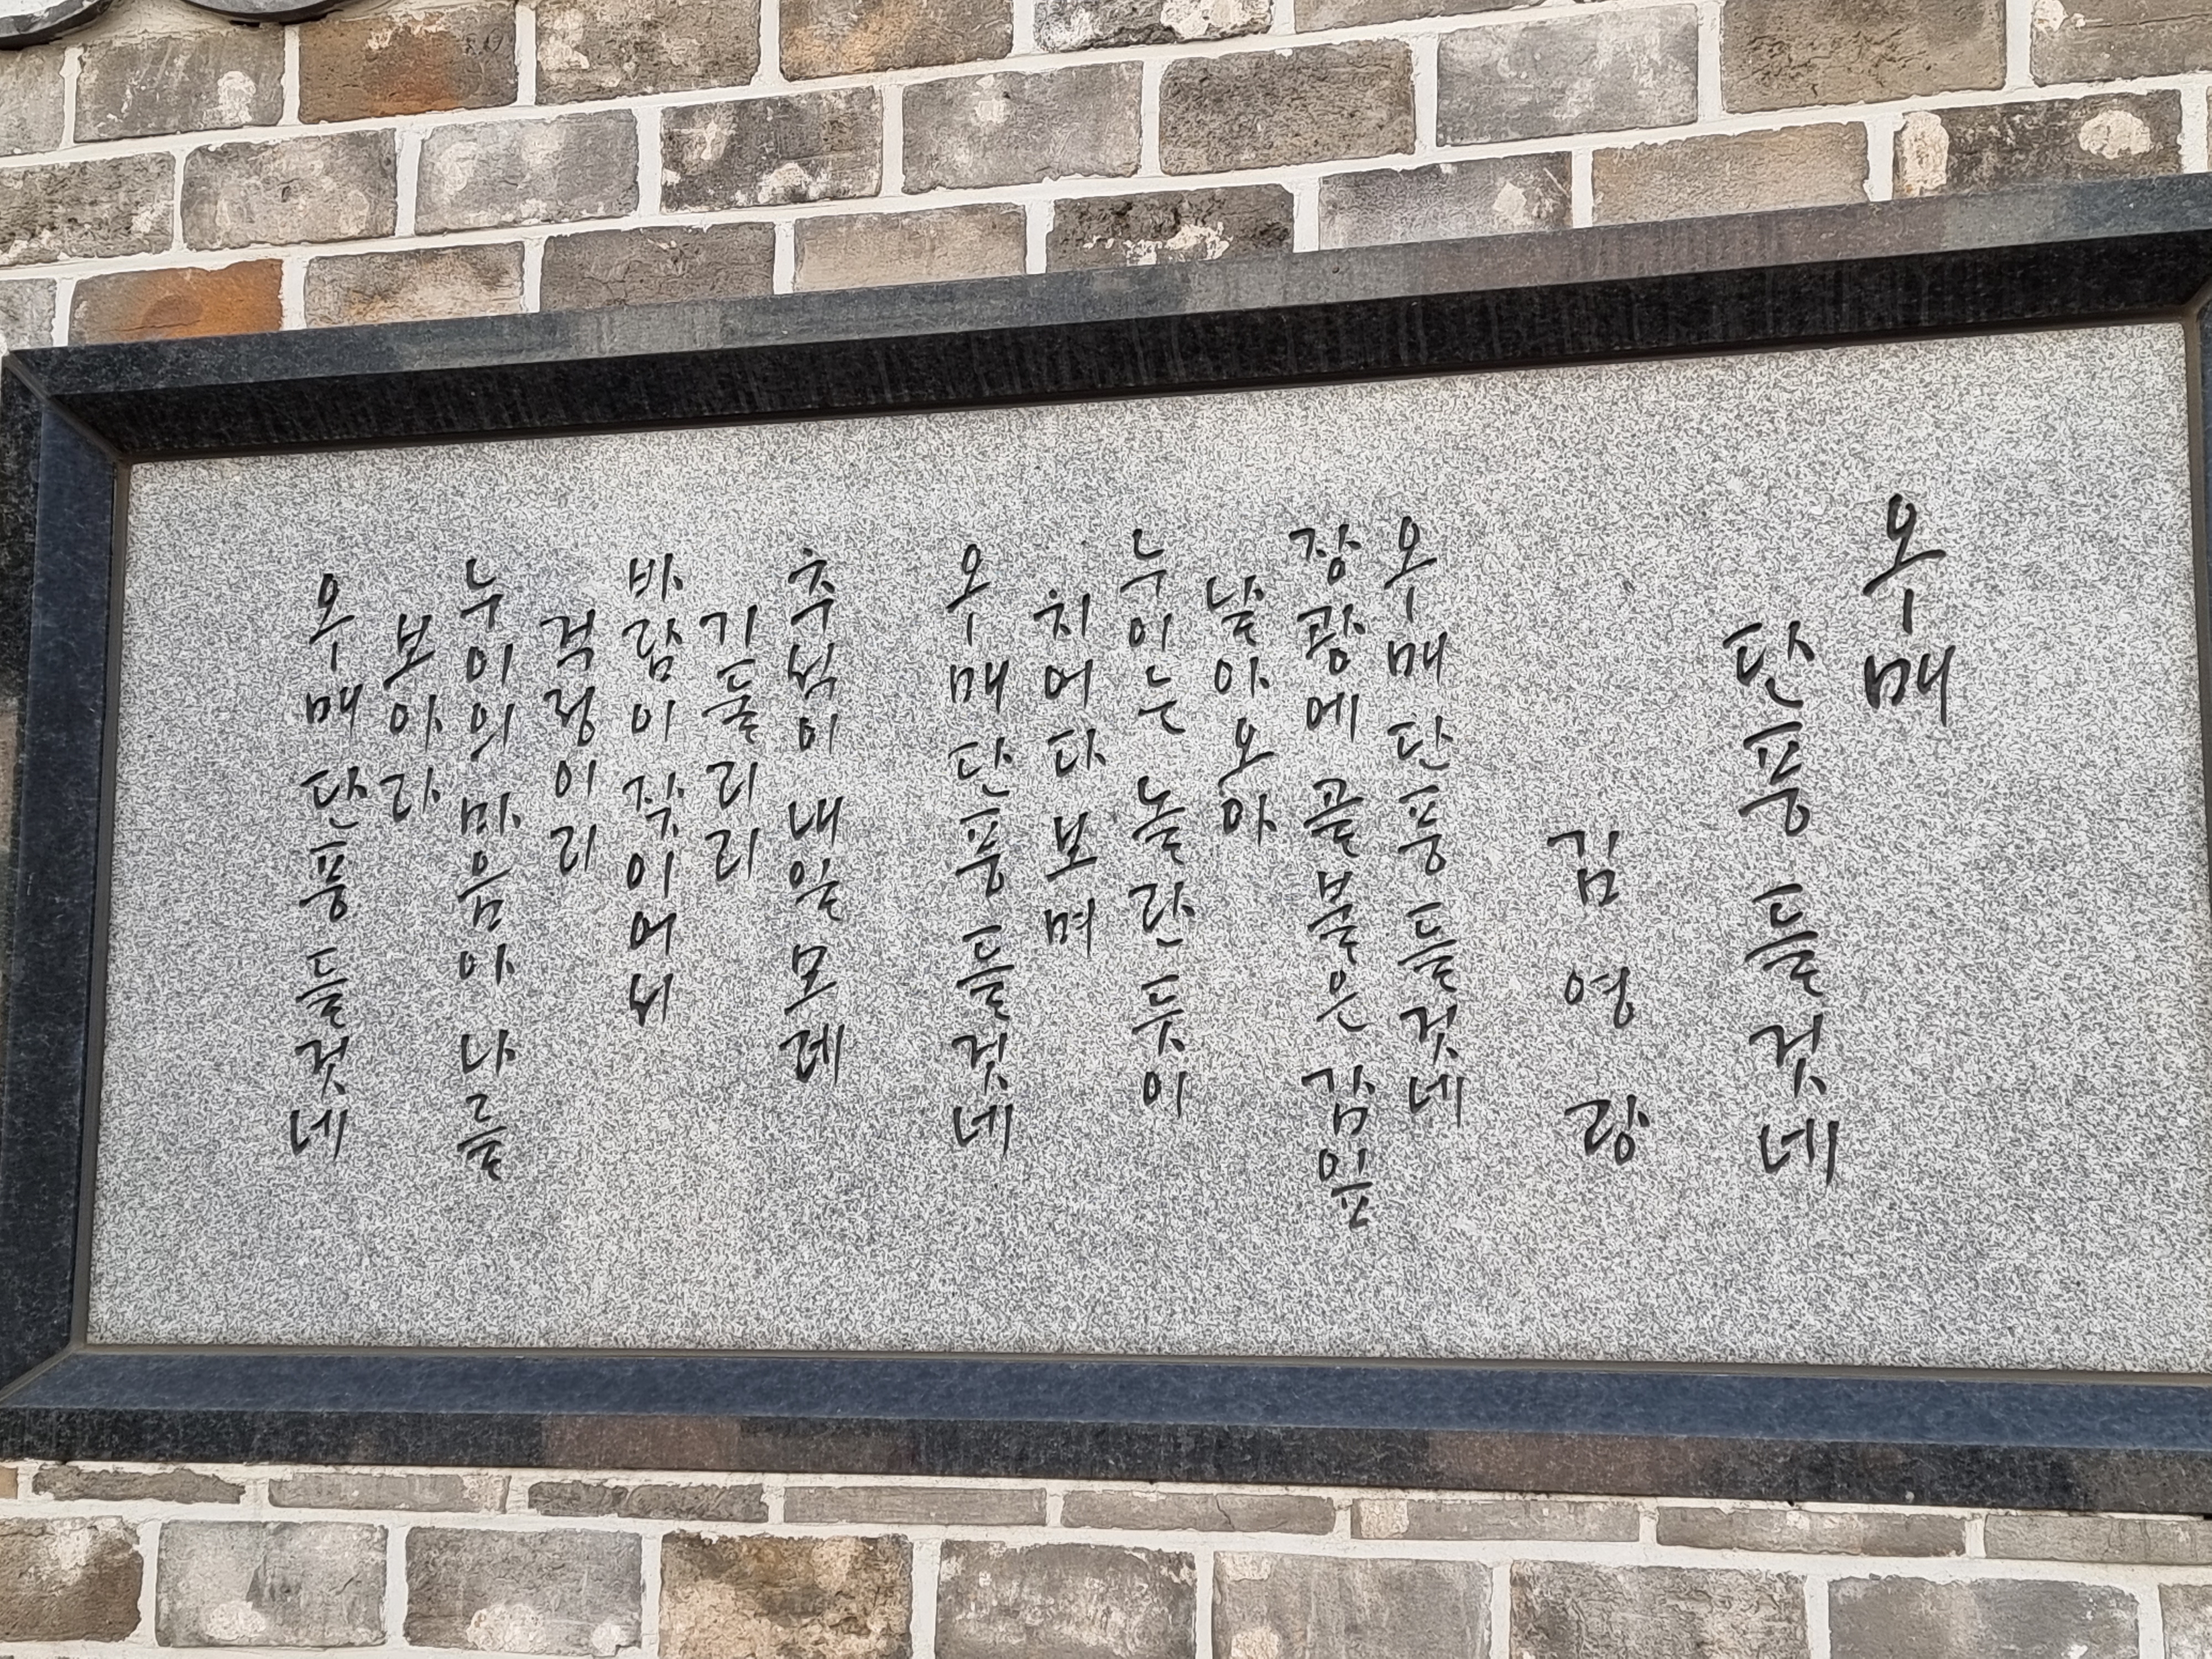 오매
단풍 들것네
김영랑
오매 단풍 들것네
장광에 골불은 감잎
날아오아
누이는 놀란 듯이
치어다보며
오매 단풍 들것네
추석이 내일 모레
기둘리리
바람이 잦이어서
걱정이리
누이의 마음아 나를
보아라
오매 단풍 들것네